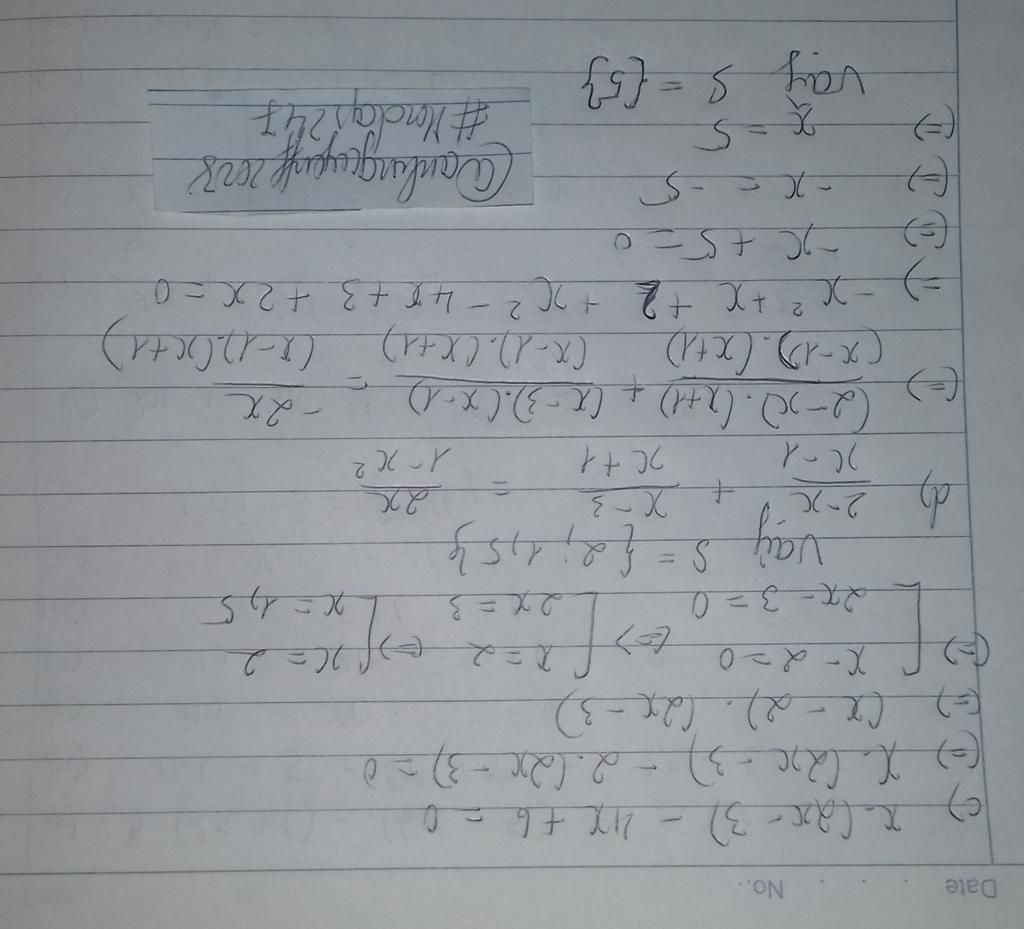 Date . . . No.
c) x.(2x-3) - 4x + 6 = 0
(=) x.(2x-3) - 2.(2x-3) = 0
(=) (x-2).(2x-3)
(=) [x-2=0 (=) [x=2 (=) [x=2
[2x-3=0 [2x=3 [x=1,5
Vậy S = {2; 1,5}
d) (2-x)/(x-1) + (x-3)/(x+1) = 2x/(1-x²)
(=) ((2-x).(x+1))/((x-1).(x+1)) + ((x-3).(x-1))/((x-1).(x+1)) = (-2x)/((x-1).(x+1))
=) -x² + x + 2 + x² - 4x + 3 + 2x = 0
(=) -x + 5 = 0
(=) -x = -5
(=) x = 5
Vậy S = {5}
#Monday247